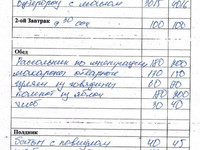 Бутерброд с маслом 30/5 40/6
2-ой Завтрак сок 100 100
Обед
Рассольник по ленинградски 180 200
макароны отварные 110 130
гуляш из говядины 60 80
Компот из яблок 150 200
хлеб 30 40
Полдник
батон с повидлом 40 45